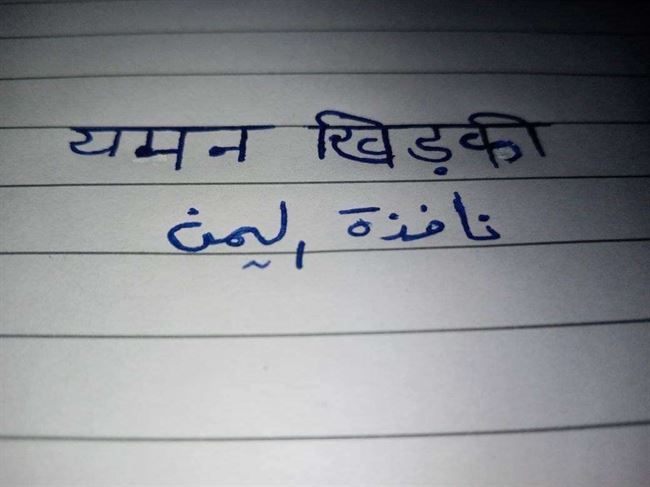 यमन खिड़की
نافذة اليمن